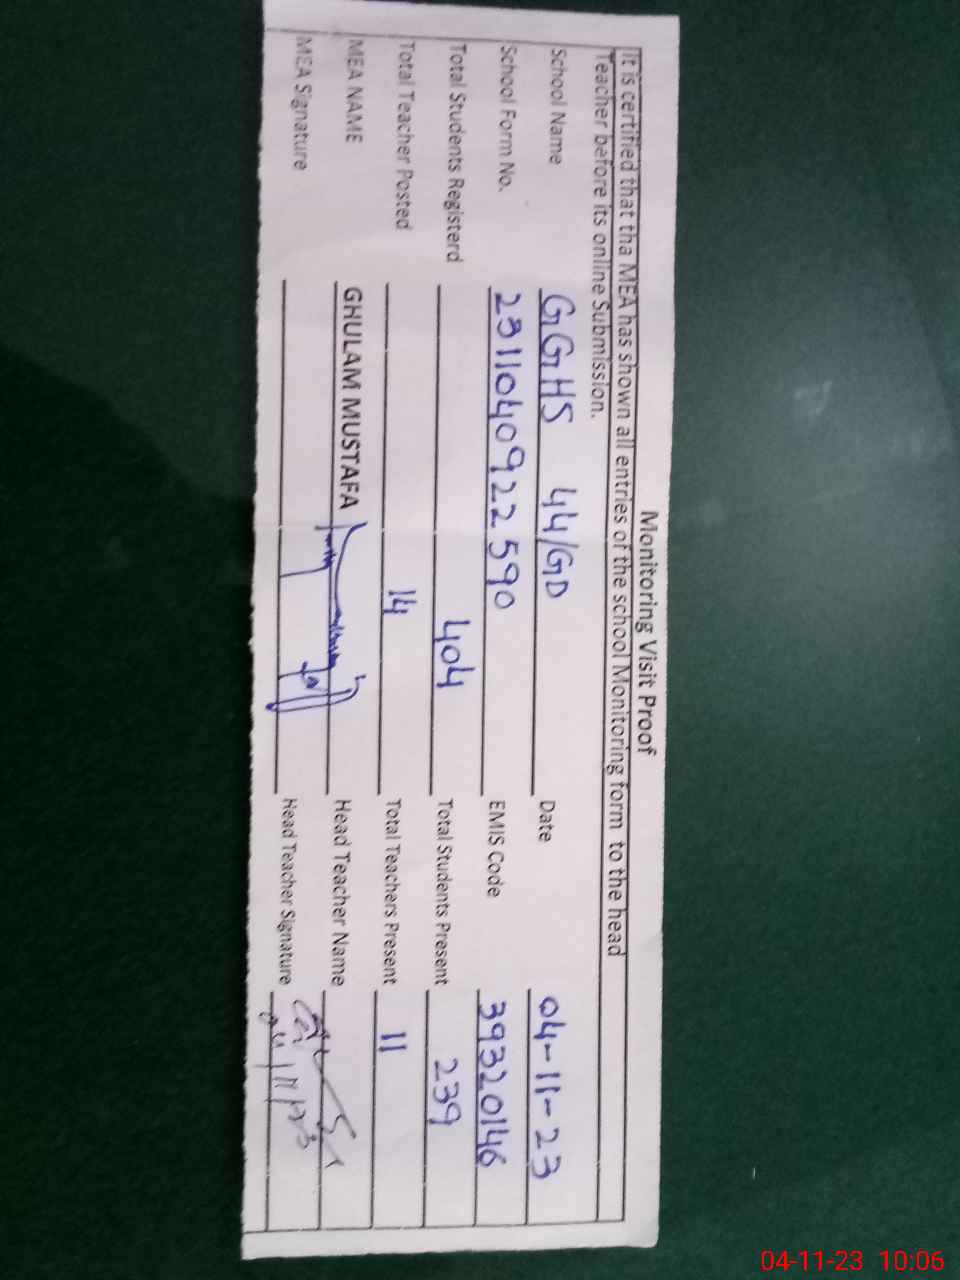 Monitoring Visit Proof
It is certified that tha MEA has shown all entries of the school Monitoring form to the head
Teacher before its online Submission.
School Name GGHS 44/GD Date 04-11-23
School Form No. 2311040922590 EMIS Code 39320146
Total Students Registerd 404 Total Students Present 239
Total Teacher Posted 14 Total Teachers Present 11
MEA NAME GHULAM MUSTAFA Head Teacher Name
MEA Signature Head Teacher Signature
04/11/23
04-11-23 10:06